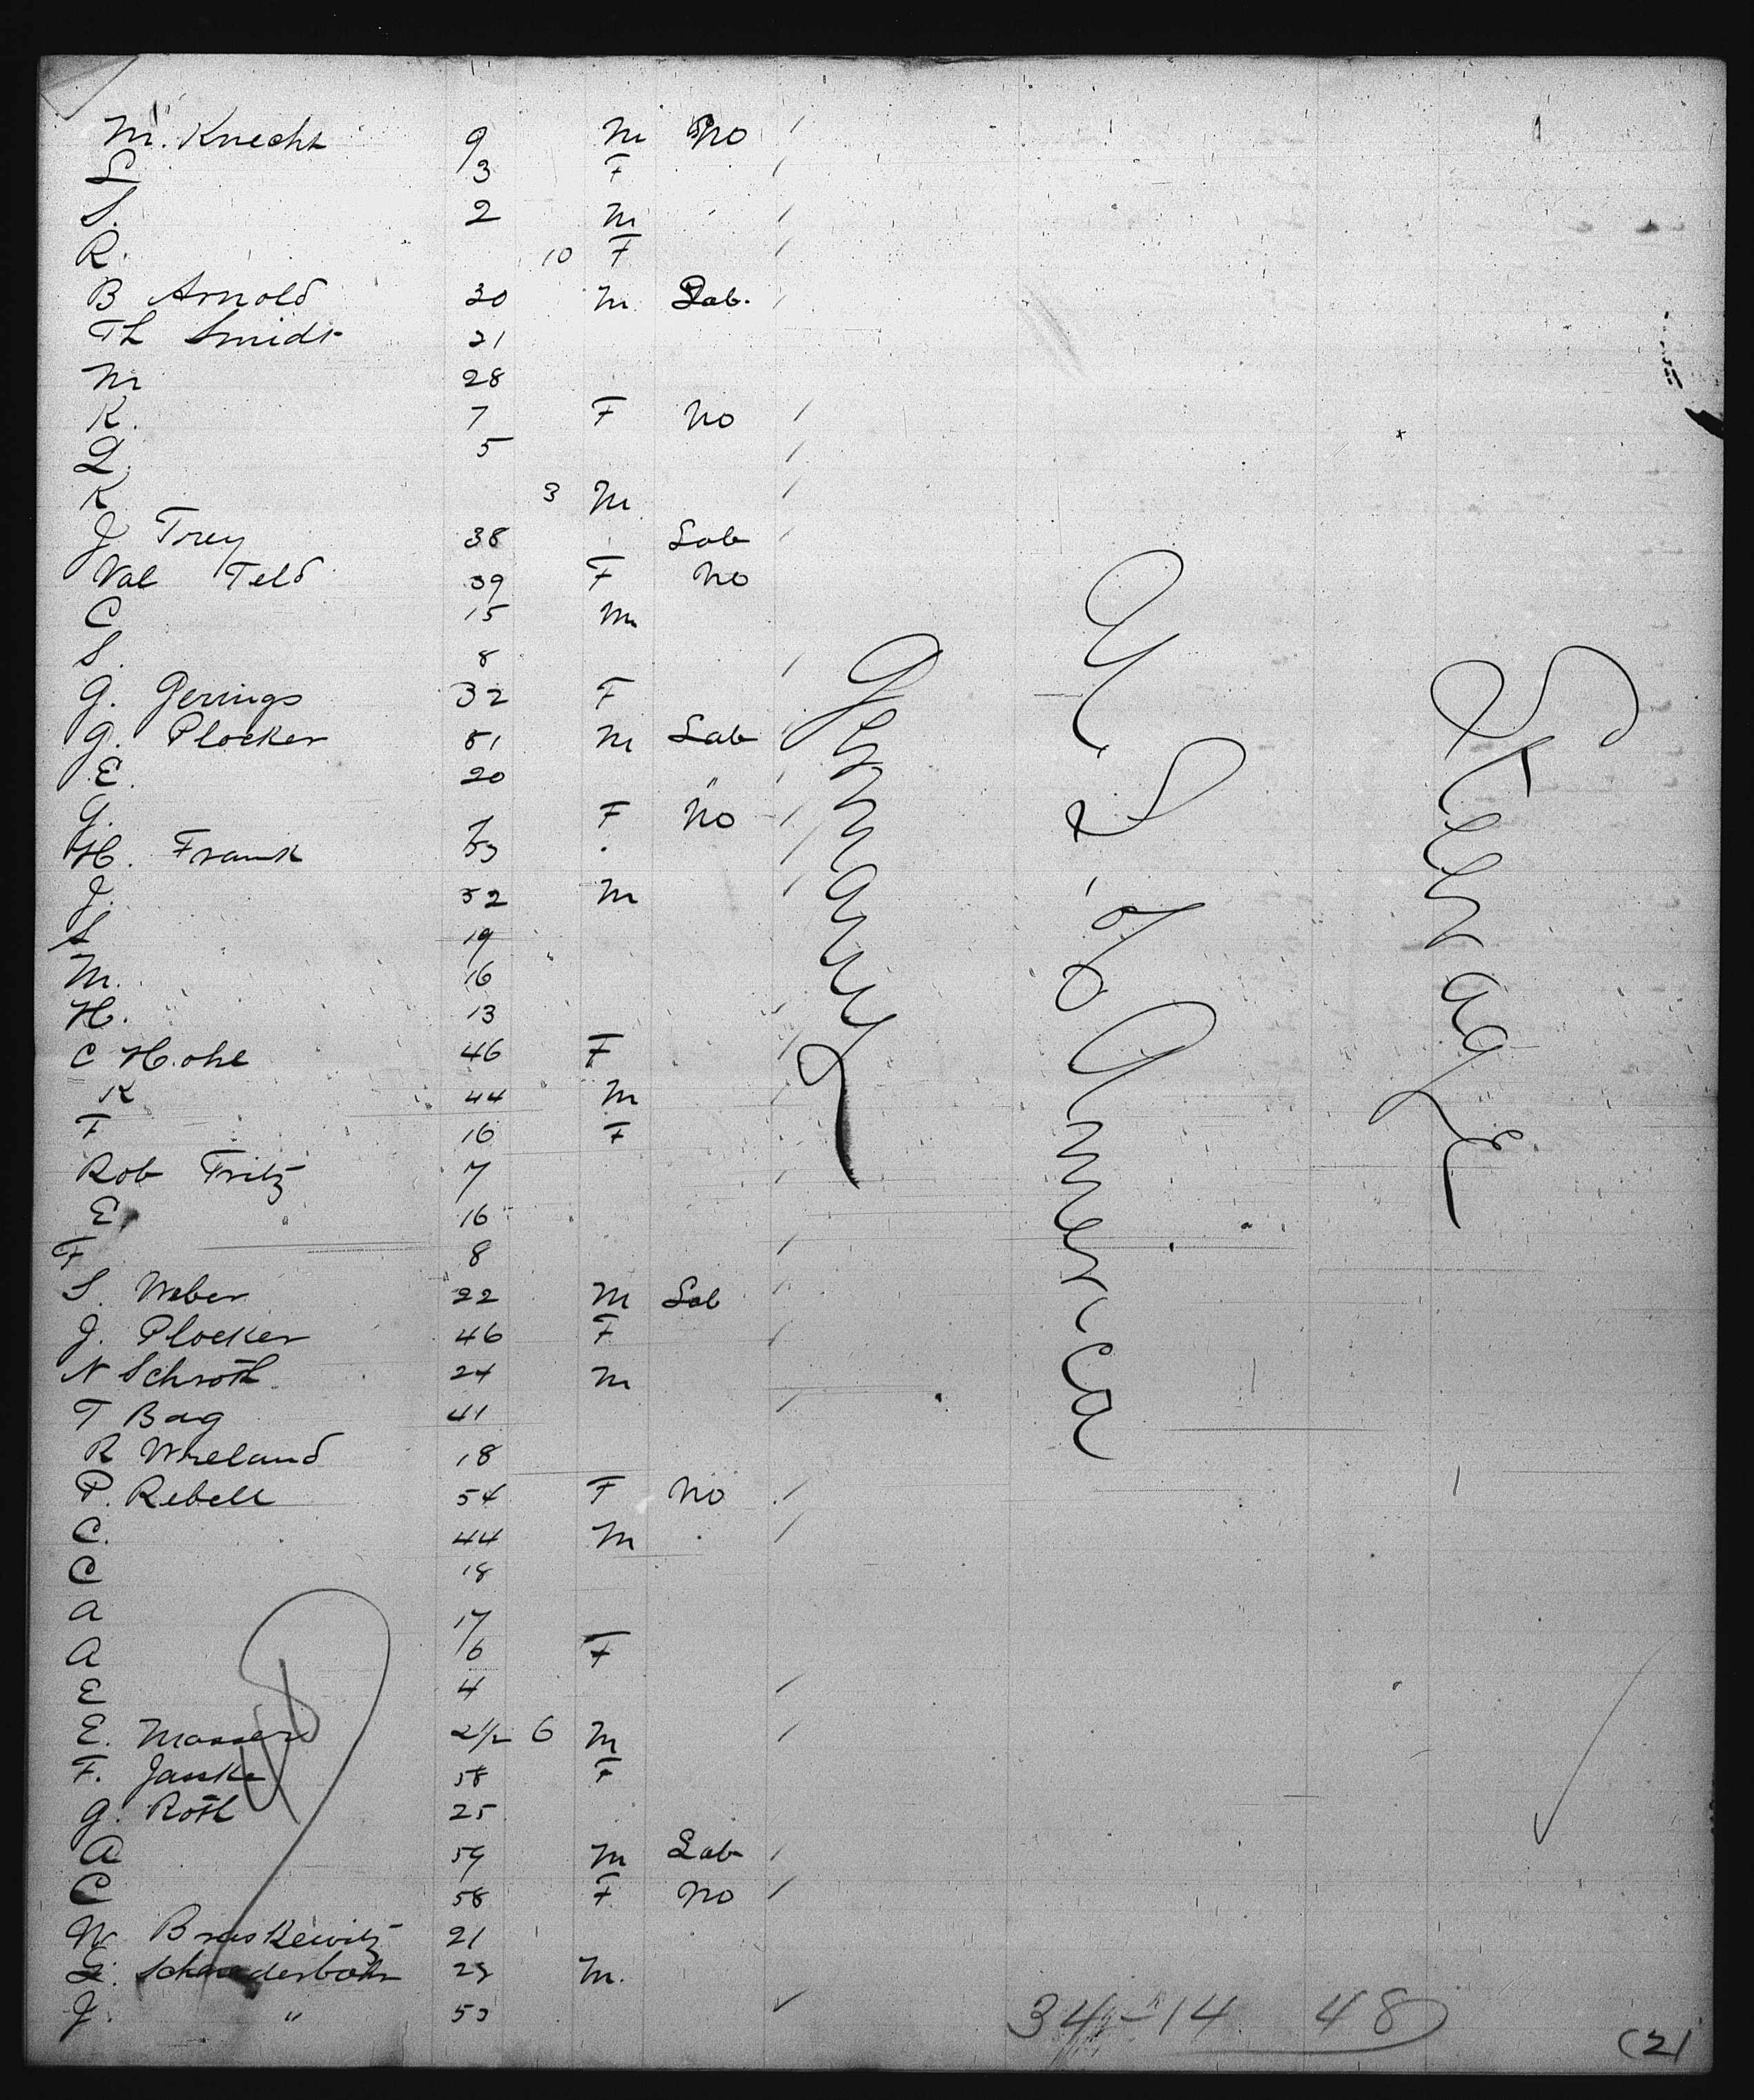 M. Knecht 9 M No
L 3 F
S. 2 M
R. 10 F
B Arnold 30 M Lab.
Th Smidt 21
M 28
K. 7 F No
L. 5
K 3 M
J Trey 38 Lab
Val Feld 39 F No
C 15 M
S. 8
G. Gerrings 32 F
G. Plocker 51 M Lab
E. 20 "
G. 7 F No
H. Frank 53
J. 52 M
S 19
M. 16
H. 13
C Hohl 46 F
K 44 M
F 16 F
Rob Fritz 7
E 16
F 8
S. Weber 22 M Lab
J. Plocker 46 F
N Schroth 24 M
T Bag 41
R Wieland 18
P. Rebell 54 F No
C. 44 M
C 18
A 17
A 6 F
E 4
E. Masser 2 1/2 6 M
F. Jasske 58 F
G. Roth 25
A 59 M Lab
C 58 F No
W. Bruskewitz 21
G. 25 M.
J. " 50
Germany
U S of America
Steerage
48
34-14 48
(2)